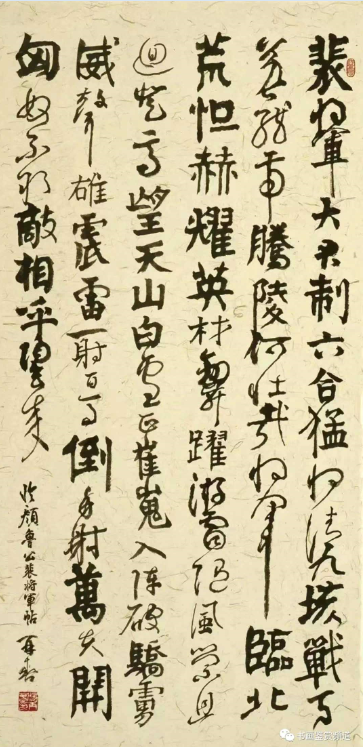 裴将軍大君制六合猛将清九垓戰馬
若龍虎騰陵何壮哉将軍臨北
荒怛赫耀英材劍舞躍游雷随風縈且
迴登高望天山白雪正崔嵬入陣破驕虜
威聲雄震雷一射百馬倒再射萬夫開
匈奴不敢敵相呼歸去来
臨顔魯公裴将軍帖